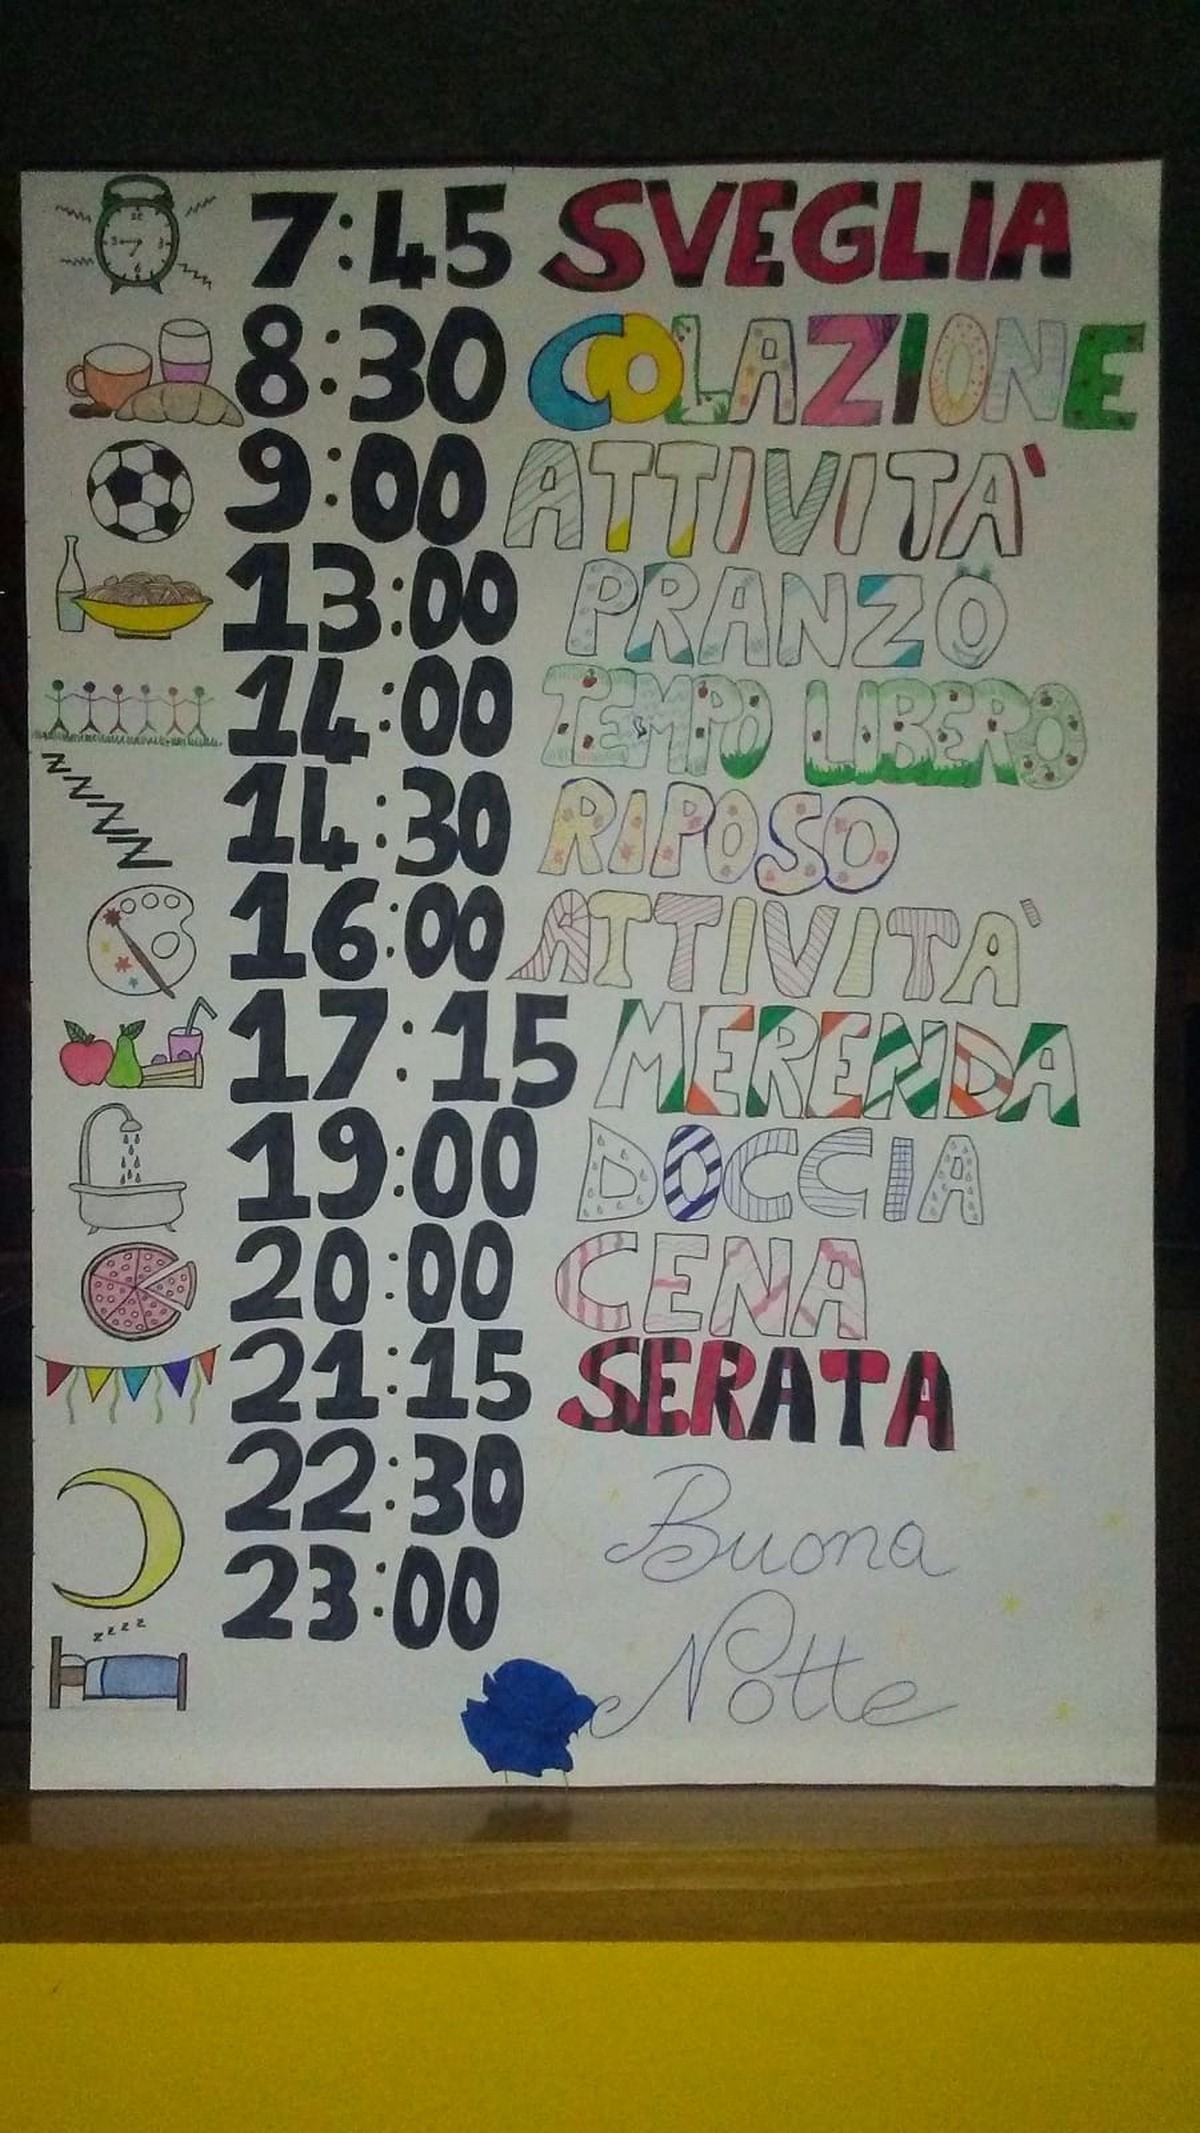 7:45 SVEGLIA
8:30 COLAZIONE
9:00 ATTIVITA'
13:00 PRANZO
14:00 TEMPO LIBERO
ZZZZZ 14:30 RIPOSO
16:00 ATTIVITA'
17:15 MERENDA
19:00 DOCCIA
20:00 CENA
21:15 SERATA
22:30 Buona
23:00
zzzz
Notte